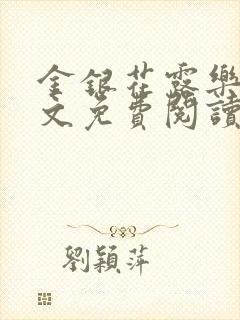 金銀花露樂
文免費閱讀
劉穎萍